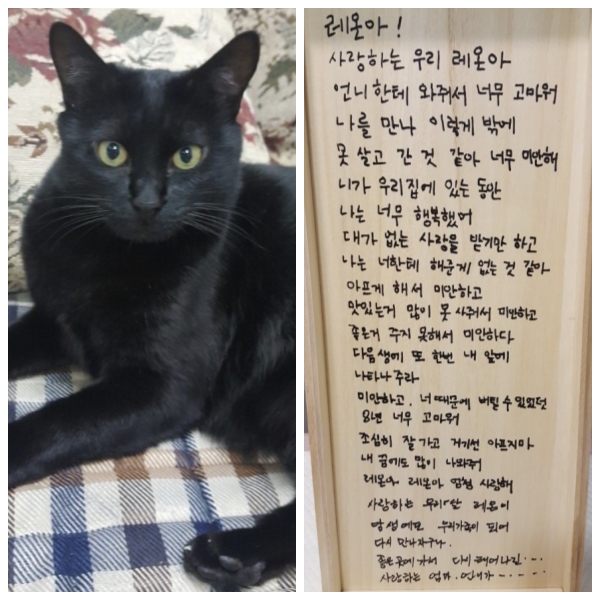 레몬아 !
사랑하는 우리 레몬아
언니한테 와줘서 너무 고마워
나를 만나 이렇게 밖에
못 살고 간 것 같아 너무 미안해
니가 우리집에 있는 동안
나는 너무 행복했어
대가 없는 사랑을 받기만 하고
나는 너한테 해준게 없는 것 같아
아프게 해서 미안하고
맛있는거 많이 못 사줘서 미안하고
좋은거 주지 못해서 미안하다
다음생에 또 한번 내 앞에
나타나주라
미안하고, 너 때문에 버틸 수 있었던
8년 너무 고마워
조심히 잘 가고 거기선 아프지마
내 꿈에도 많이 나와줘
레몬아 레몬아 엄청 사랑해
사랑하는 우리 레몬이
우리가족이 되어
다시 만나자꾸나.
좋은곳에 가서 다시 태어나길・・・
사랑하는 엄마. 언니가 - - - -